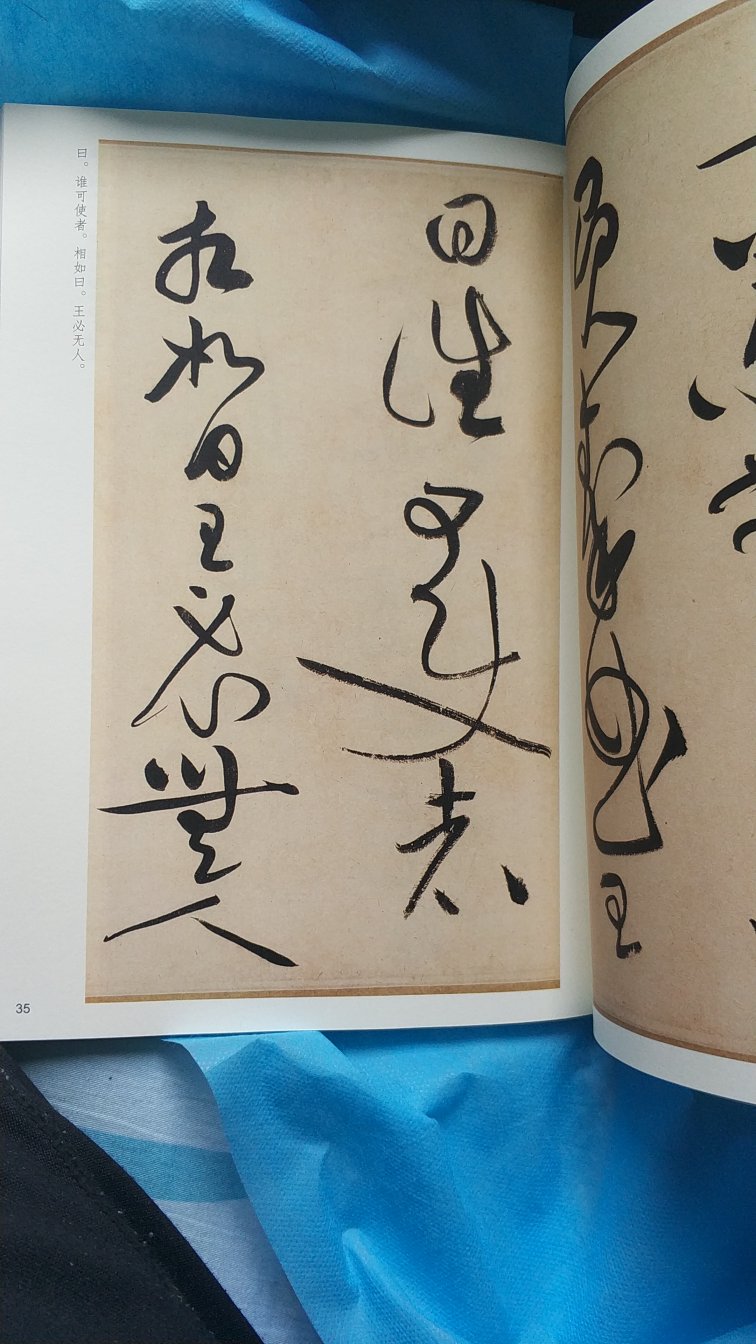 負秦曲王
曰誰可使者
相如曰王必無人
曰。谁可使者。相如曰。王必无人。
35